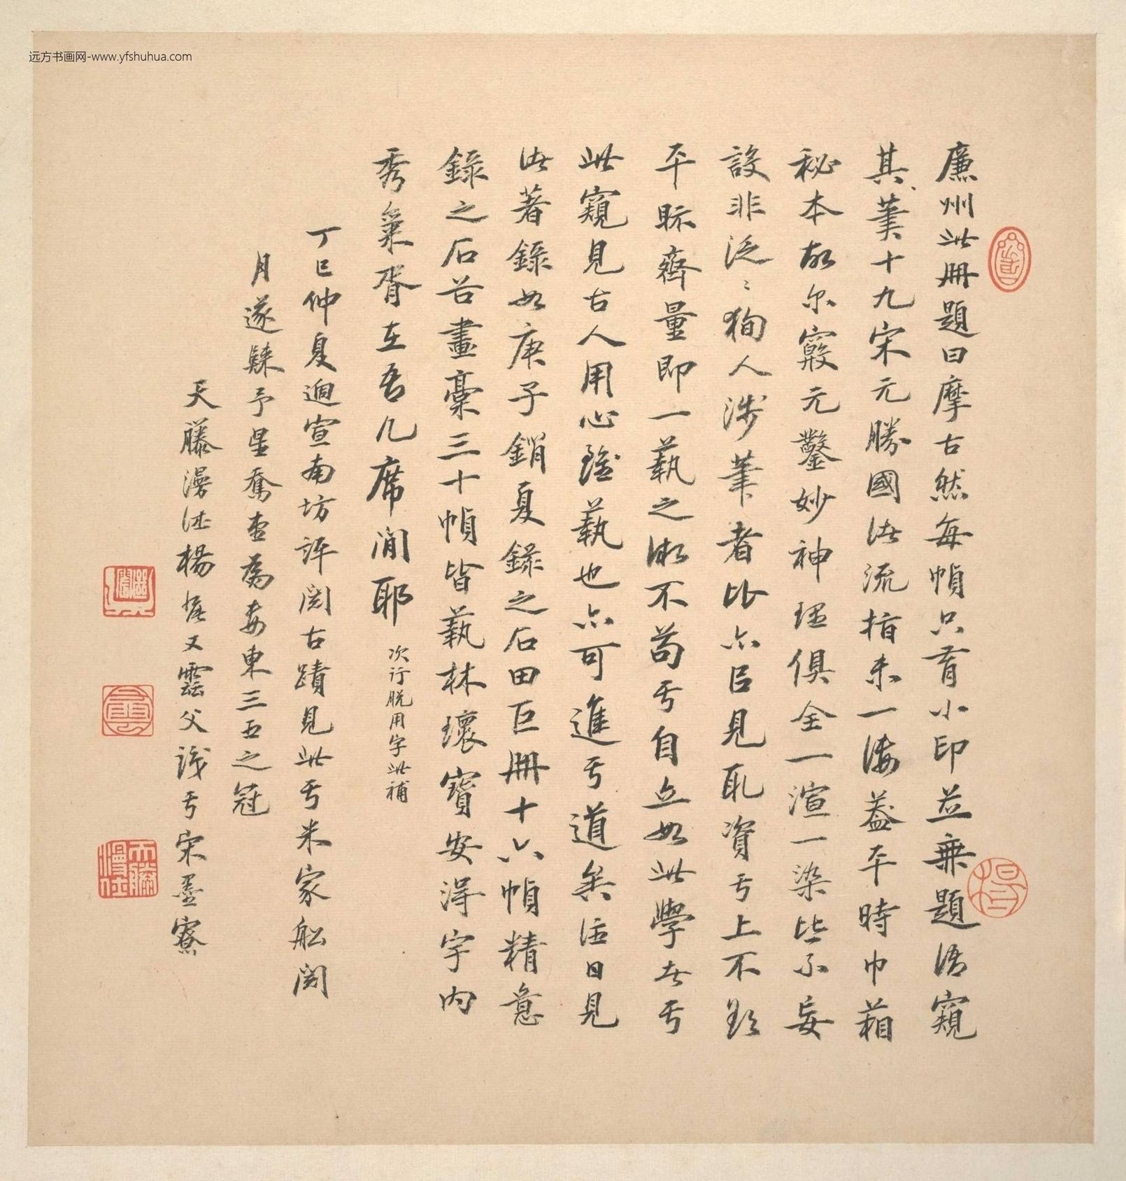 远方书画网-www.yfshuhua.com
廉州此冊題曰摩古然每幀只有小印並乘題語窺
其葉十九宋元勝國法流指未一後蓋平時巾箱
秘本故尔窾元鑿妙神理俱全一渲一染畢不妄
設非泛〻狥人涉筆者比亦足見耴資于上不
平眎齊量即一藝之微不茍于自立如此學者于
此窺見古人用心雖藝也亦可進于道矣往日見
法著錄如庚子銷夏錄之石田巨冊十六幀精意
錄之石谷畫稾三十幀皆藝林瓌寶安得宇内
秀氣胥在吾几席閒耶
次行脱用字此補
丁巳仲夏過宣南坊許閲古蹟見此于米家舩閲
月遂歸予星奪壺為喜東三五之冠
天籐漫仕楊 又雲父識于宋墨寮